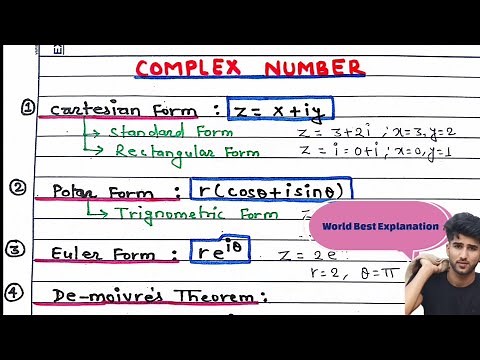 COMPLEX NUMBER
① Cartesian Form : z = x+iy
→ Standard Form z = 3+2i ; x=3, y=2
→ Rectangular Form z = i = 0+i ; x=0, y=1
② Polar Form : r(cosθ+isinθ)
→ Trignometric Form
World Best Explanation
③ Euler Form : re^iθ z = 2e
r=2, θ=π
④ De-moivre's Theorem :